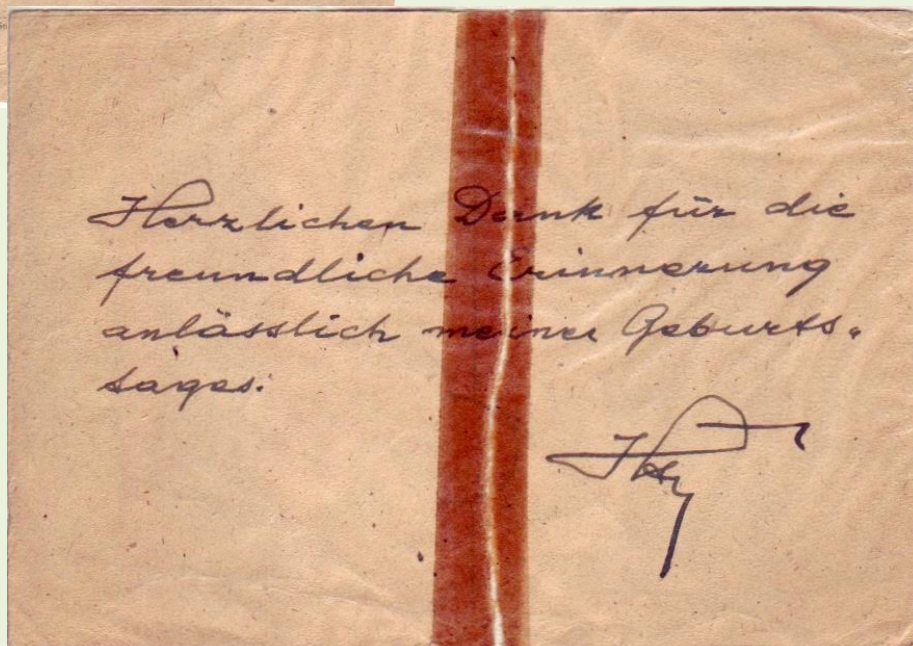 Herzlichen Dank für die
freundliche Erinnerung
anlässlich meines Geburts-
tages.